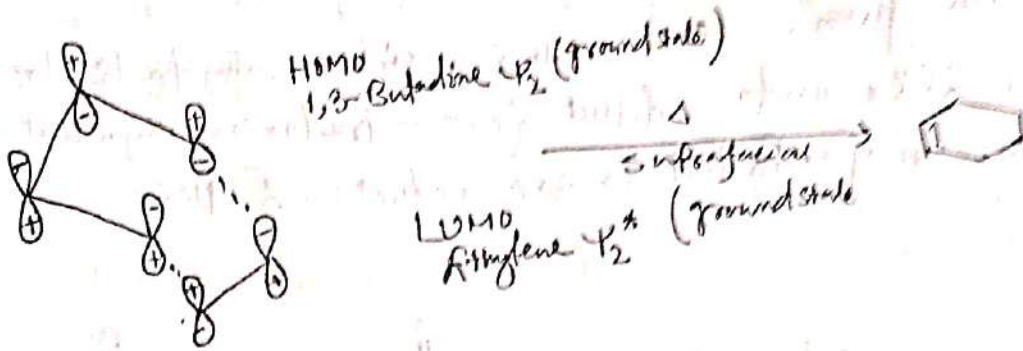 HOMO
1,3-Butadine Ψ₂ (ground state)
Δ
suprafacial
LUMO
Ethylene Ψ₂* (ground state
+
-
+
-
-
+
-
+
-
+
+
-